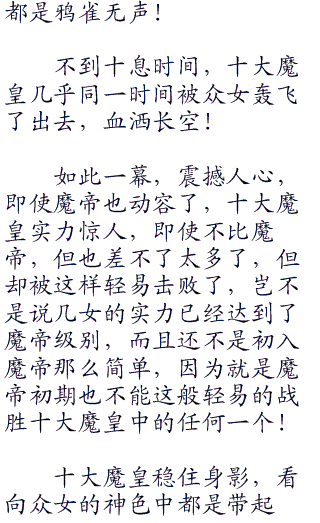 都是鸦雀无声！
不到十息时间，十大魔
皇几乎同一时间被众女轰飞
了出去，血洒长空！
如此一幕，震撼人心，
即使魔帝也动容了，十大魔
皇实力惊人，即使不比魔
帝，但也差不了太多了，但
却被这样轻易击败了，岂不
是说几女的实力已经达到了
魔帝级别，而且还不是初入
魔帝那么简单，因为就是魔
帝初期也不能这般轻易的战
胜十大魔皇中的任何一个！
十大魔皇稳住身影，看
向众女的神色中都是带起